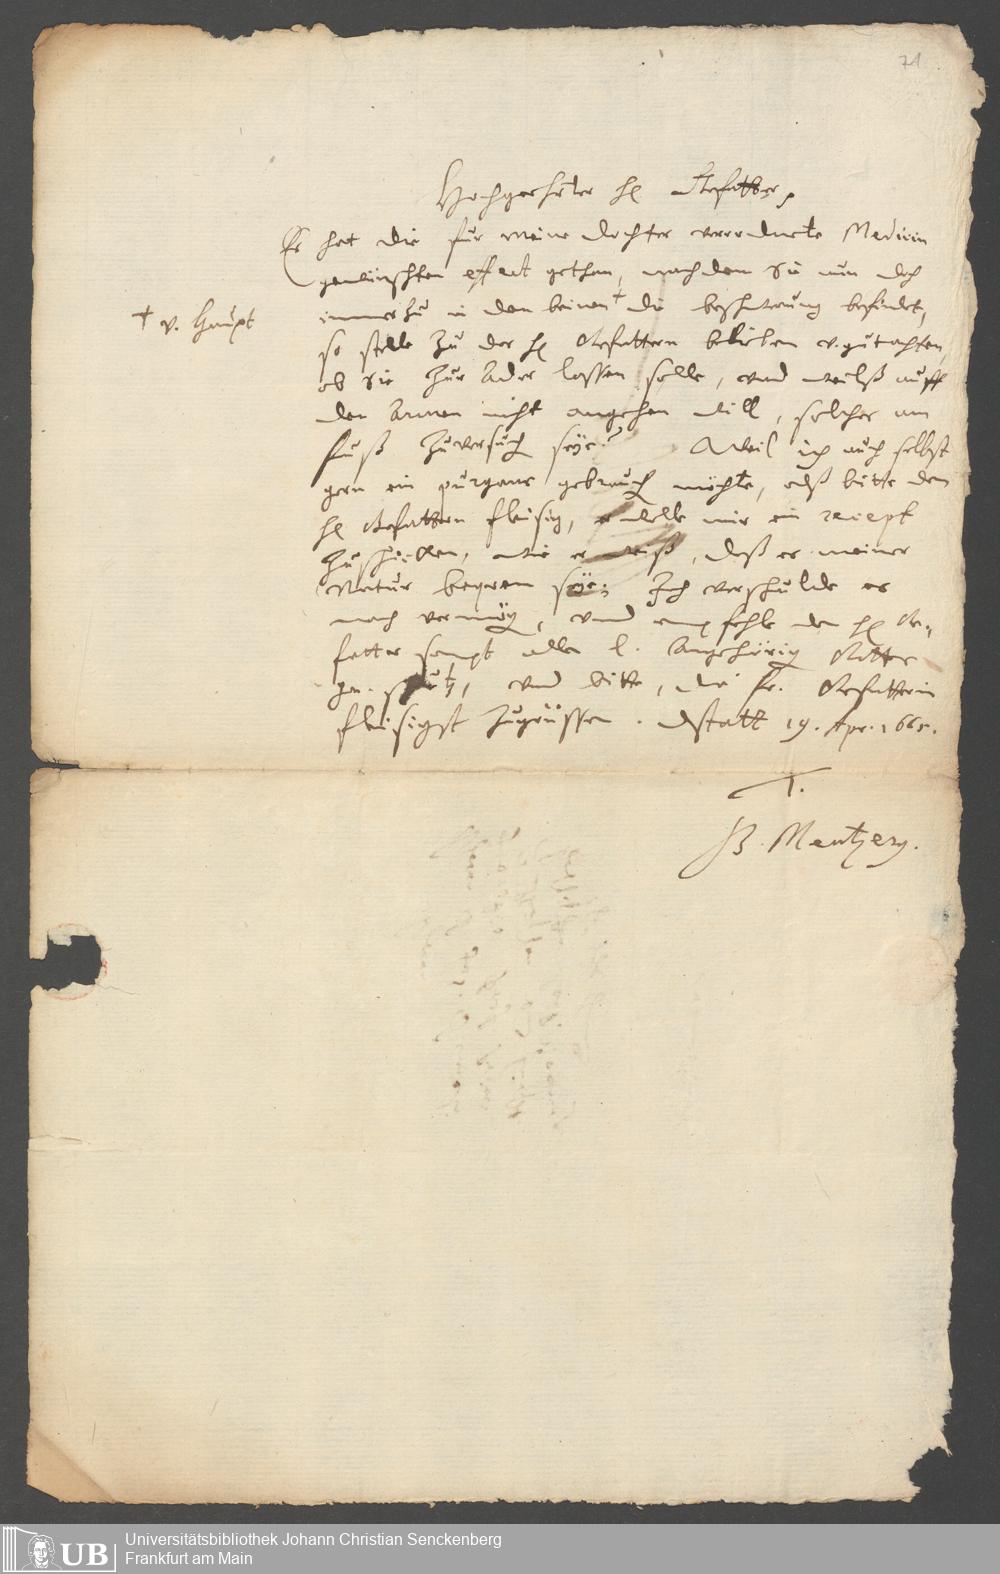 71
Hochgeehrter H Gefatter,
Es hat die für meine dochter verordnete Medicin
gewünschten effect gethan, nachdem sie nun doch
immerzu in den beinen † die beschwerung befindet,
† v. Haupt
so stelle zu des H Gefattern belieben v. gutachten,
ob sie zur Ader lassen solle, vnd weilß auff
den Armen nicht angehen will, solches am
fuß zuversuchen seye? Weil ich auch selbst
gern ein purgans gebrauchen möchte, alß bitte den
H Gefattern fleisig, er wolle mir ein recept
zuschicken, wie er weiß, daß es meiner
Natur bequem seye; Ich verschulde es
nach vermögen, vnd empfehle den H Ge-
fatter sampt allen l. Angehörigen Gottes
gn. schutz, vnd bitte, die fr. Gefatterin
fleisigst zugrüssen. Dstatt 19. Apr. 1665.
T.
B. Mentzerg.
UB Universitätsbibliothek Johann Christian Senckenberg
Frankfurt am Main